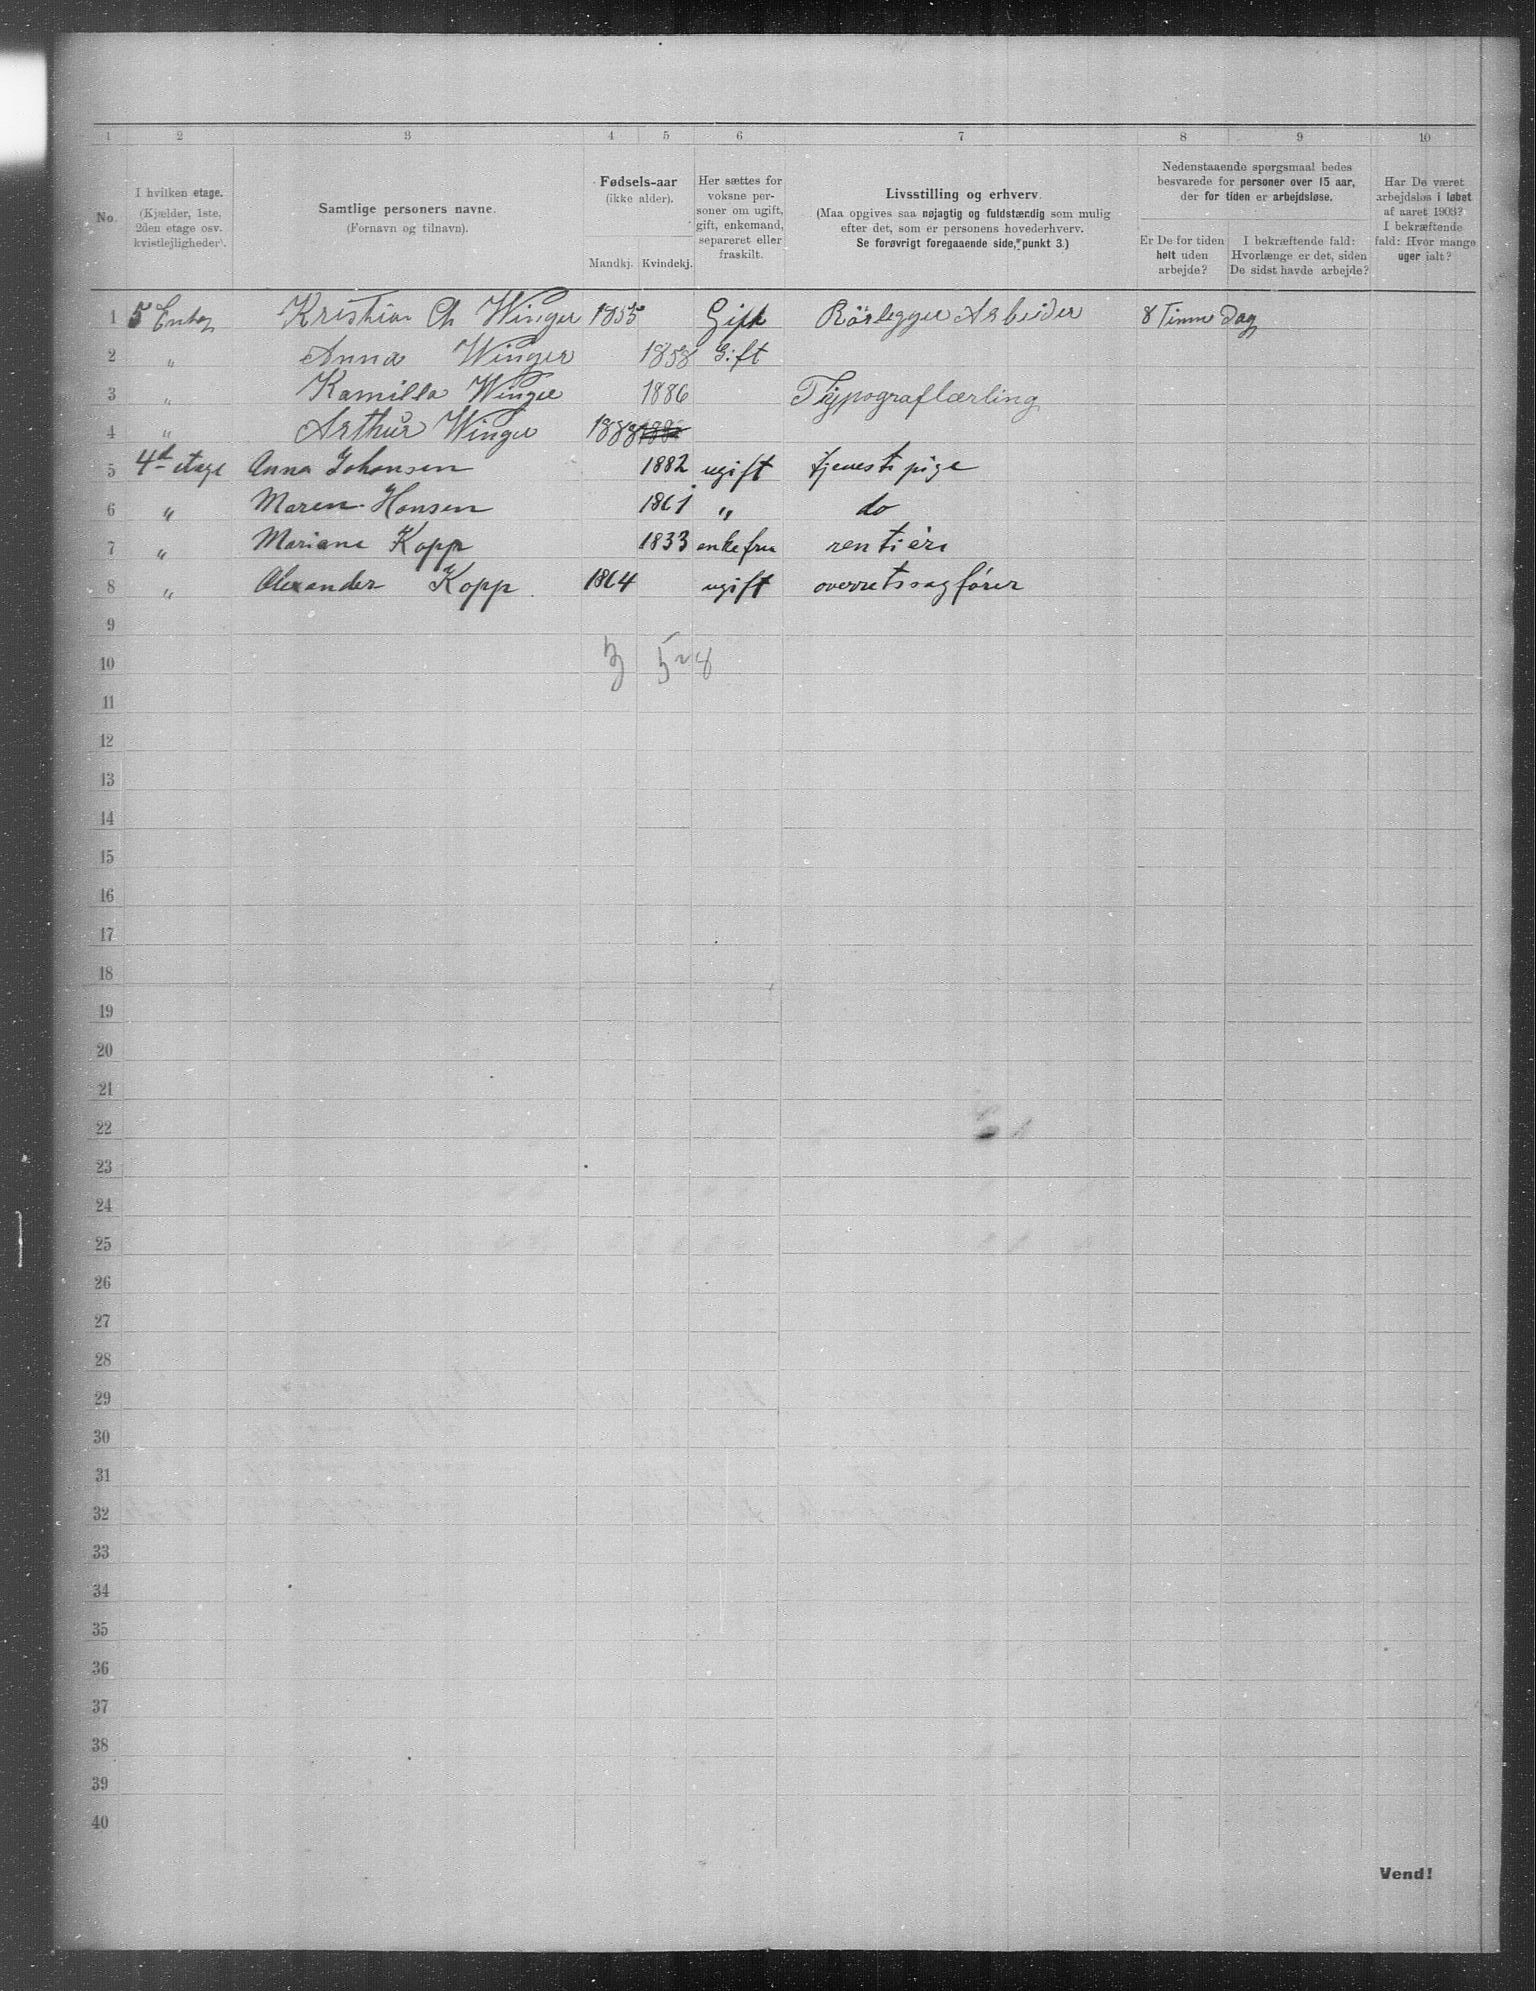 1 2 3 4 5 6 7 8 9 10
No.
I hvilken etage.
(Kjælder, 1ste,
2den etage osv.
kvistlejligheder).
Samtlige personers navne.
(Fornavn og tilnavn).
Fødsels-aar
(ikke alder).
Mandkj. Kvindekj.
Her sættes for
voksne per-
soner om ugift,
gift, enkemand,
separeret eller
fraskilt.
Livsstilling og erhverv.
(Maa opgives saa nøjagtig og fuldstændig som mulig
efter det, som er personens hovederhverv.
Se forøvrigt foregaaende side, punkt 3.)
Nedenstaaende spørgsmaal bedes
besvarede for personer over 15 aar,
der for tiden er arbejdsløse.
Er De for tiden
helt uden
arbejde?
I bekræftende fald:
Hvorlænge er det, siden
De sidst havde arbejde?
Har De været
arbejdsløs i løbet
af aaret 1903?
I bekræftende
fald: Hvor mange
uger ialt?
1 5 Kristian Ch Winger 1855 Gift Rörlegger Arbeider 8 Timm Dag
2 „ Anna Winger 1858 Gift
3 „ Kamilla Winger 1886 Typograflærling
4 „ Arthur Winger 1888
5 4d etage Anna Johansen 1882 ugift tjenestpige
6 „ Maren Hansen 1861 „ do
7 „ Mariane Kopp 1833 enkefru rentière
8 „ Alexander Kopp 1864 ugift overretssagfører
9
10 3 5 - 8
11
12
13
14
15
16
17
18
19
20
21
22
23
24
25
26
27
28
29
30
31
32
33
34
35
36
37
38
39
40
Vend!